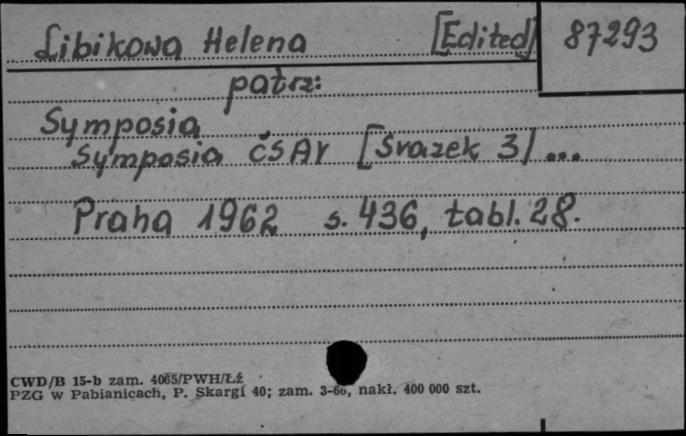 Libikowa Helena [Edited] 87293
patrz:
Symposia
Symposia ČSAV [Svazek 3] ...
Praha 1962 s. 436, tabl. 28.
CWD/B 15-b zam. 4065/PWH/Łź
PZG w Pabianicach, P. Skargi 40; zam. 3-66, nakł. 400 000 szt.